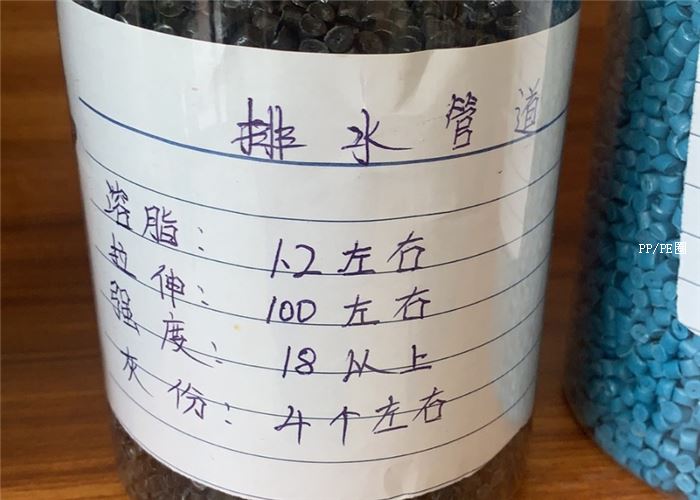 排水管道
溶脂：1.2左右
拉伸：100左右
强度：18以上
灰份：4个左右
PP/PE圈